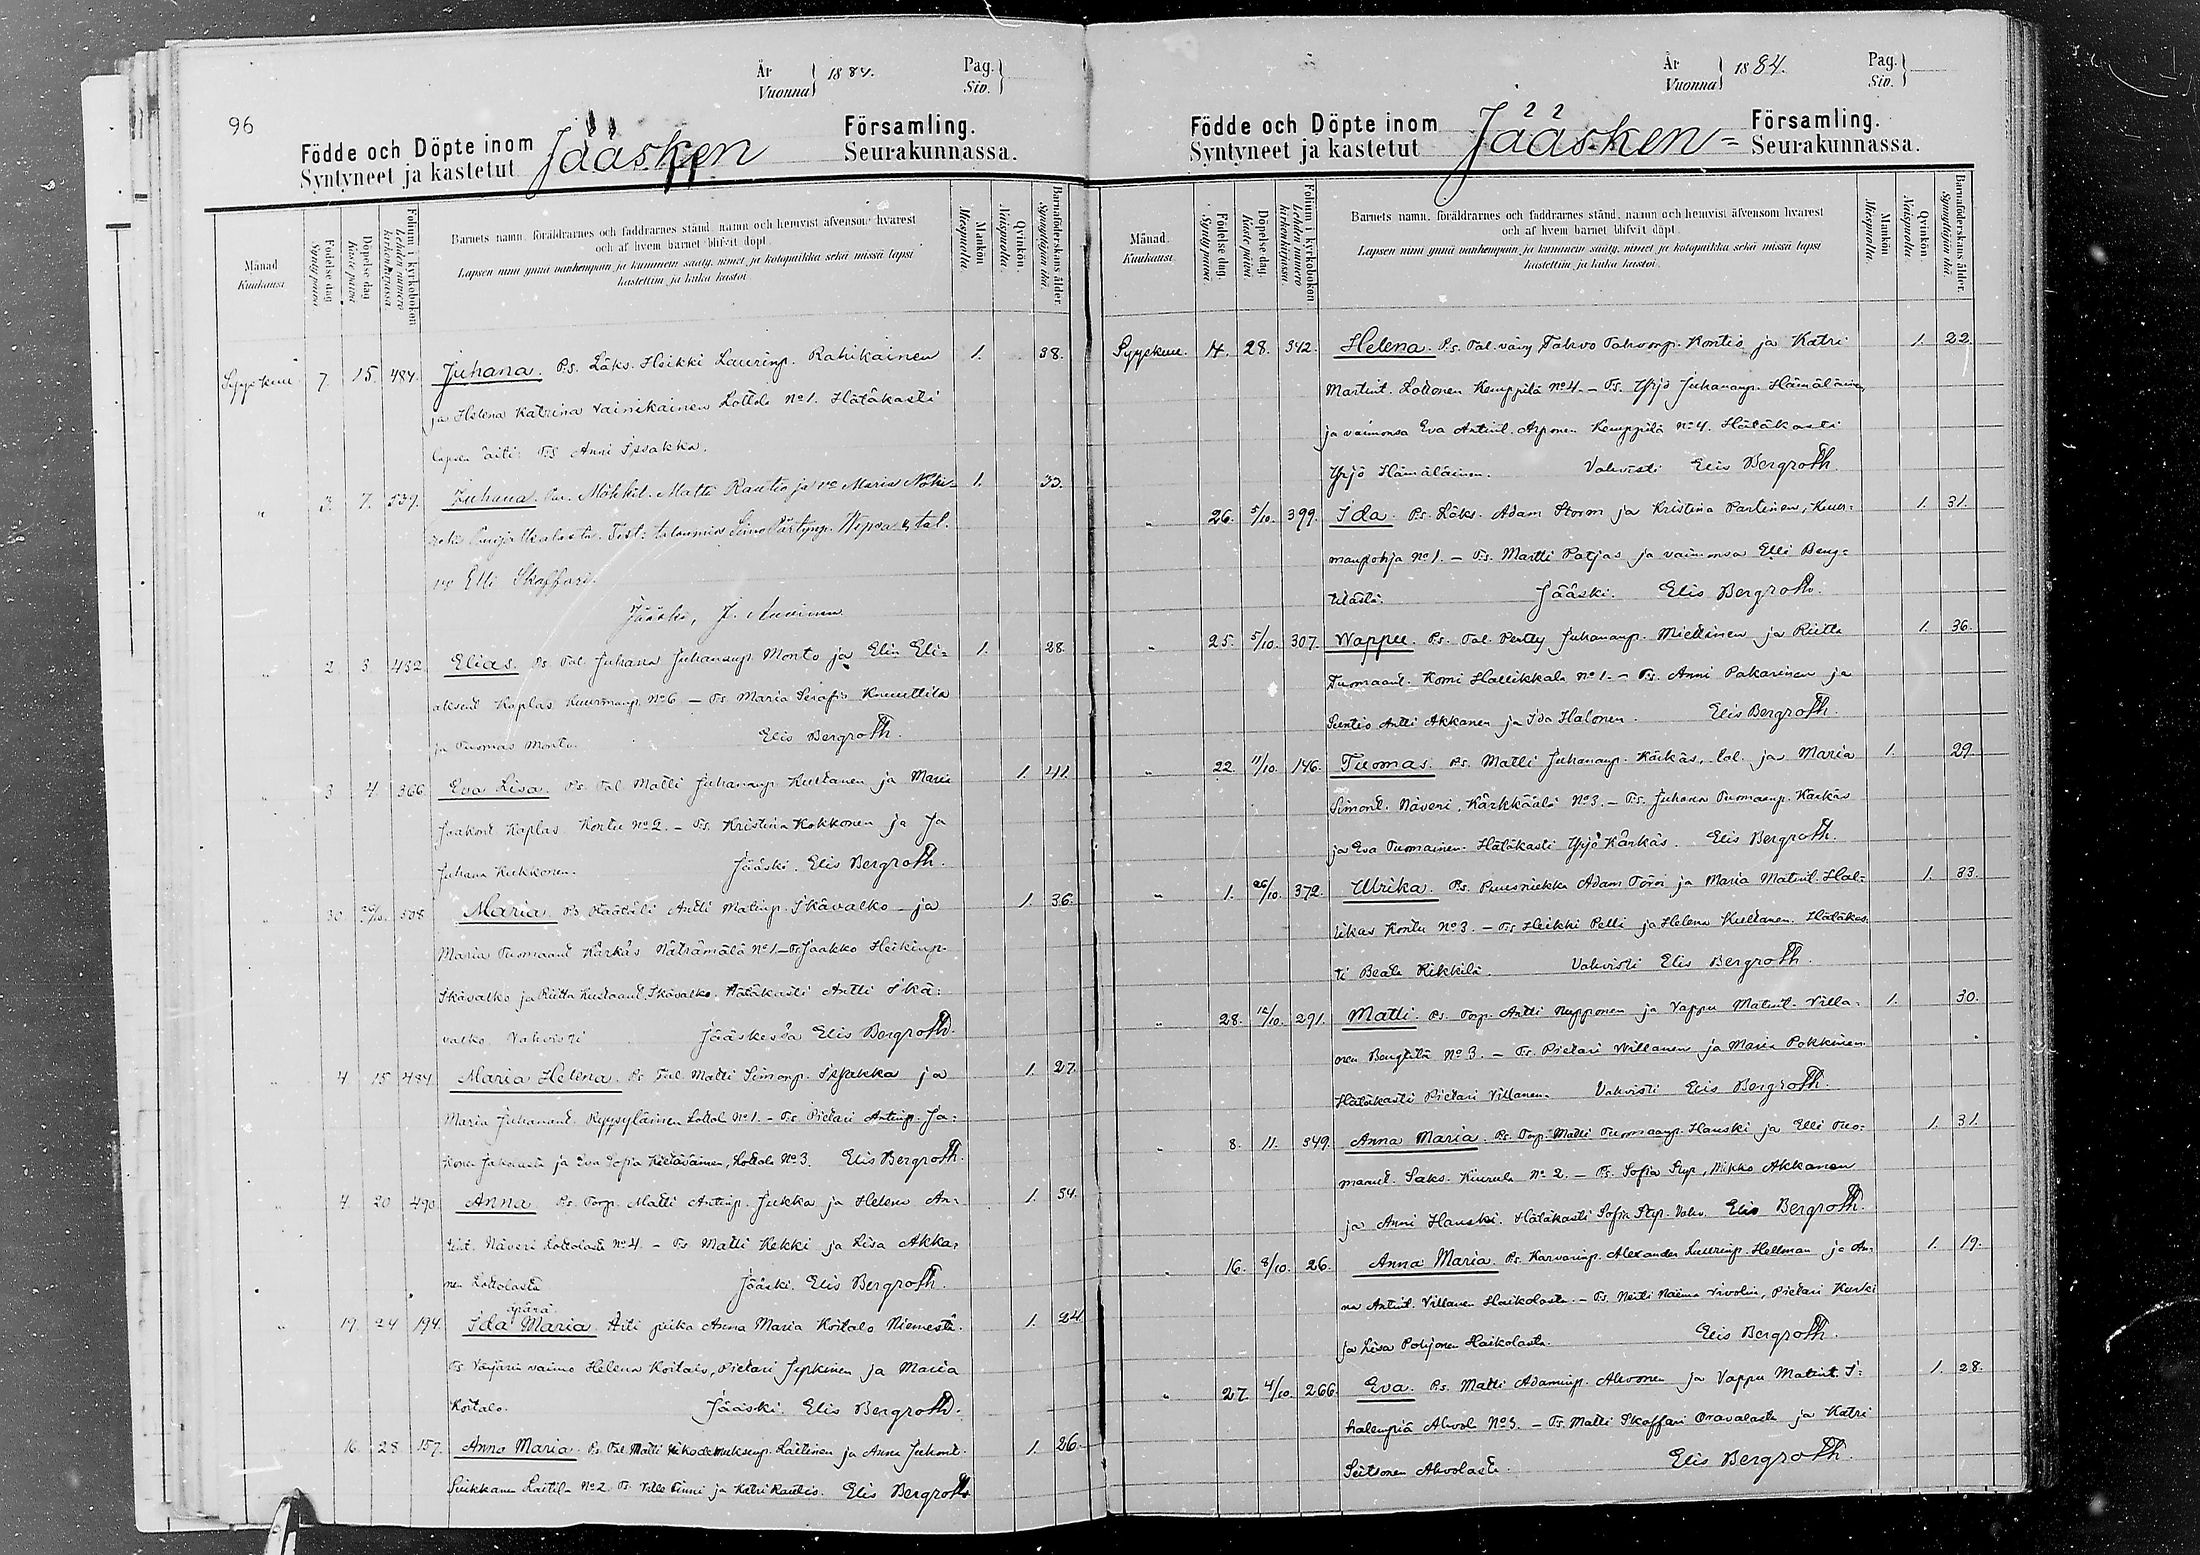 96
År
Vuonna
1884.
Pag.
Siv.
Födde och Döpte inom
Syntyneet ja kastetut
Jääsken
Församling.
Seurakunnassa.
Månad
Kuukausi
Födelse dag
Syntypäivä
Döpelse dag
Kaste päivä
Folium i kyrkoboken
Lehden numero kirkonkirjassa
Barnets namn, föräldrarnes och faddrarnes stånd, namn och hemvist äfvensom hvarest
och af hvem barnet blifvit döpt.
Lapsen nimi ynnä vanhempain ja kummein sääty, nimet ja kotopaikka sekä missä lapsi
kastettiin ja kuka kastoi.
Mankön
Miespuolia
Qvinkön.
Naispuolia
Barnaföderskans ålder.
Synnyttäjän ikä.
Syyskuu 7. 15. 484. Juhana. Ps. Läks. Heikki Laurinp. Rahikainen 1. 38.
ja Helena Katrina Vainikainen Lottola No 1. Hätäkasti
lapsen äiti Ts Anni Ijsakka.
" 3. 7. 539. Juhana. Matti Rautio ja vo Maria 1. 33.
vo Elli Skaffari.
Jääski,
" 2 3 432 Elias. Ps Tal. Juhana Juhananp. Monto ja Elin Eli= 1. 28.
aksent Kaplas Kuurmanp. No 6 – Ts Maria Serafia Knuuttila
ja Tuomas Monto. Elis Bergroth.
" 3 4 366 Eva Lisa. Ps. Tal. Matti Juhananp. Kuttanen ja Maria 1. 41.
Jaakont Kaplas Kontu No 2. – Ts. Kristina Kokkonen ja Ja
Juhana Kukkonen. Jääski. Elis Bergroth.
" 30 508 Maria Ps Räätäli Antti Matinp. Skävalko – ja 1. 36.
Maria Tuomaant Kärkäs Näträmälä No 1. – Ts Jaakko Heikinp.
Skävalko ja Riitta Kustaant. Skävalko. Hätäkasti Antti Skä=
valko Vahvisti Jääskessä Elis Bergroth.
" 4 15 484 Maria Helena. Ps Tal Matti Simonp. Ijsakka ja 1. 27.
Maria Juhanant. Kyysyläinen Lottol. No 1. – Ts. Pietari Antinp. Ja=
ja Eva Sofia Lottola No 3. Elis Bergroth.
" 4. 20 490. Anna Ps. Torp. Matti Antinp. Jukka ja Helena An= 1. 34.
tint. Näveri Lottolasta No 4 – Ts Matti Kekki ja Lisa Akka=
nen Lottolasta Jääski. Elis Bergroth.
äpärä
" 19. 24 194. Ida Maria. Äiti piika Anna Maria Koitalo Niemestä. 1. 24
Ts. Värjärin vaimo Helena Koitalo, Pietari Jyrkinen ja Maria
Koitalo. Jääski. Elis Bergroth.
" 16. 28 157. Anna Maria. Ps Tal. Matti Laitinen ja Anna Juhont. 1. 26.
Suikkanen Laitila No 2. Ts. Ville Pinni ja Katri Rautio. Elis Bergroth
År
Vuonna
1884.
Pag.
Siv.
Födde och Döpte inom
Syntyneet ja kastetut
Jääsken =
Församling.
Seurakunnassa.
Månad.
Kuukausi.
Födelse dag.
Syntypäivä.
Döpelse dag.
Kaste päivä.
Folium i kyrkoboken
Lehden numero kirkonkirjassa
Barnets namn, föräldrarnes och faddrarnes stånd, namn och hemvist äfvensom hvarest
och af hvem barnet blifvit döpt.
Lapsen nimi ynnä vanhempain ja kummein sääty, nimet ja kotopaikka sekä missä lapsi
kastettiin ja kuka kastoi.
Mankön
Miespuolia.
Qvinkön.
Naispuolia.
Barnaföderskans ålder.
Synnyttäjän ikä.
Syyskuu. 14. 28. 342. Helena. Ps. Tal. vävy Tahvo Tahvonp. Kontio ja Katri 1. 22.
Martint. Lottonen Kemppilä No 4. – Ts. Yrjö Juhananp. Hämäläinen
ja vaimonsa Eva Antint. Arponen Kemppilä No 4. Hätäkasti
Yrjö Hämäläinen. Vahvisti Elis Bergroth.
" 26. 5/10. 399. Ida. Ps. Läks. Adam Storm ja Kristina Partinen, Kuur= 1. 31.
manpohja No 1. – Ts. Martti Patjas ja vaimonsa Elli Beng=
tilästä. Jääski. Elis Bergroth.
" 25. 5/10. 307. Wappu. Ps. Tal. Perttu Juhananp. Miettinen ja Riitta 1. 36.
Tuomaant. Komi Hallikkala No 1. – Ts. Anni Pakarinen ja
Suntio Antti Akkanen ja Ida Halonen. Elis Bergroth.
" 22. 11/10. 146. Tuomas. Ps. Matti Juhananp. Kärkäs, tal. ja Maria 1. 29.
Simont. Näveri, Kärkkäälä No 3. – Ts. Juhana Tuomaanp. Kärkäs
ja Eva Tuomainen. Hätäkasti Yrjö Kärkäs. Elis Bergroth.
" 1. 26/10. 372. Ulrika. Ps. Puusniekka Adam Törn ja Maria Matint. Hal= 1. 33.
tikas Kontu No 3. – Ts Heikki Pelli ja Helena Kuttanen. Hätäkas=
ti Beata Rikkilä. Vahvisti Elis Bergroth.
" 28. 12/10. 291. Matti. Ps. Torp. Antti Nupponen ja Vappu Matint. Villa= 1. 30.
nen Bengtilä No 3. – Ts. Pietari Willanen ja Maria Pokkinen
Hätäkasti Pietari Villanen. Vahvisti Elis Bergroth.
" 8. 11. 349. Anna Maria. Ps. Torp. Matti Tuomaanp. Hanski ja Elli Tuo= 1. 31.
maant. Saks. Kiurula No 2. – Ts. Sofia Styr, Mikko Akkanen
ja Anni Hanski. Hätäkasti Sofia Styr. Vahv. Elis Bergroth.
" 16. 8/10. 26. Anna Maria. Ps Karvarinp. Alexander Laurinp. Hellman ja An= 1. 19.
na Antint. Villanen Haikolasta. – Ts. Neiti Naëma Vivolin, Pietari Kurki
ja Lisa Pohjonen Haikolasta. Elis Bergroth.
" 27. 4/10. 266. Eva. Ps. Matti Adaminp. Ahvonen ja Vappu Matint. I= 1. 28.
halempiä Ahvol. No 3. – Ts. Matti Skaffari Oravalasta ja Katri
Seitsonen Ahvolasta. Elis Bergroth.